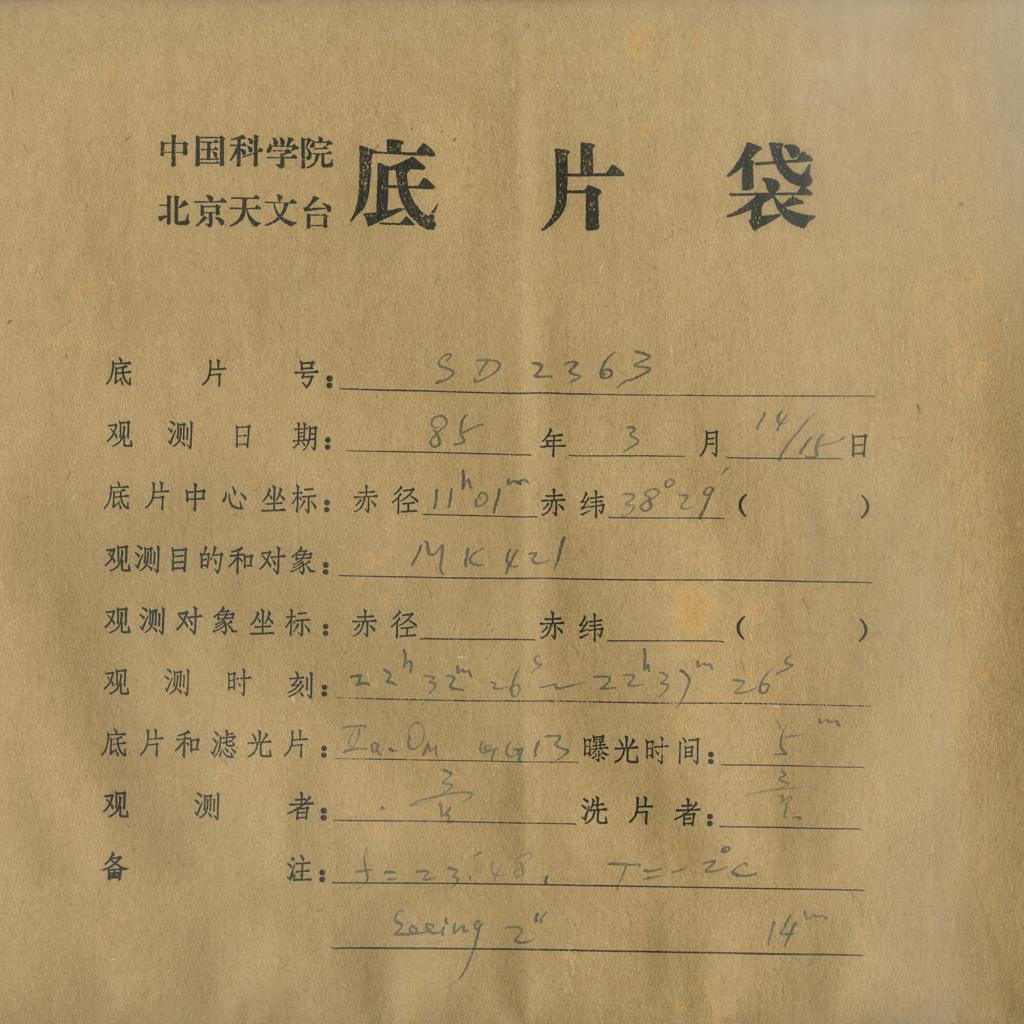 中国科学院
北京天文台 底片袋
底片号: SD2363
观测日期: 85年3月14/15日
底片中心坐标: 赤径11h01m赤纬38°29′( )
观测目的和对象: MK421
观测对象坐标: 赤径 赤纬 ( )
观测时刻: 22h32m26s~22h37m26s
底片和滤光片: IIa-O GG13 曝光时间: 5m
观测者: 洗片者:
备注: f=23.48, T=-2°C
Seeing 2″ 14m